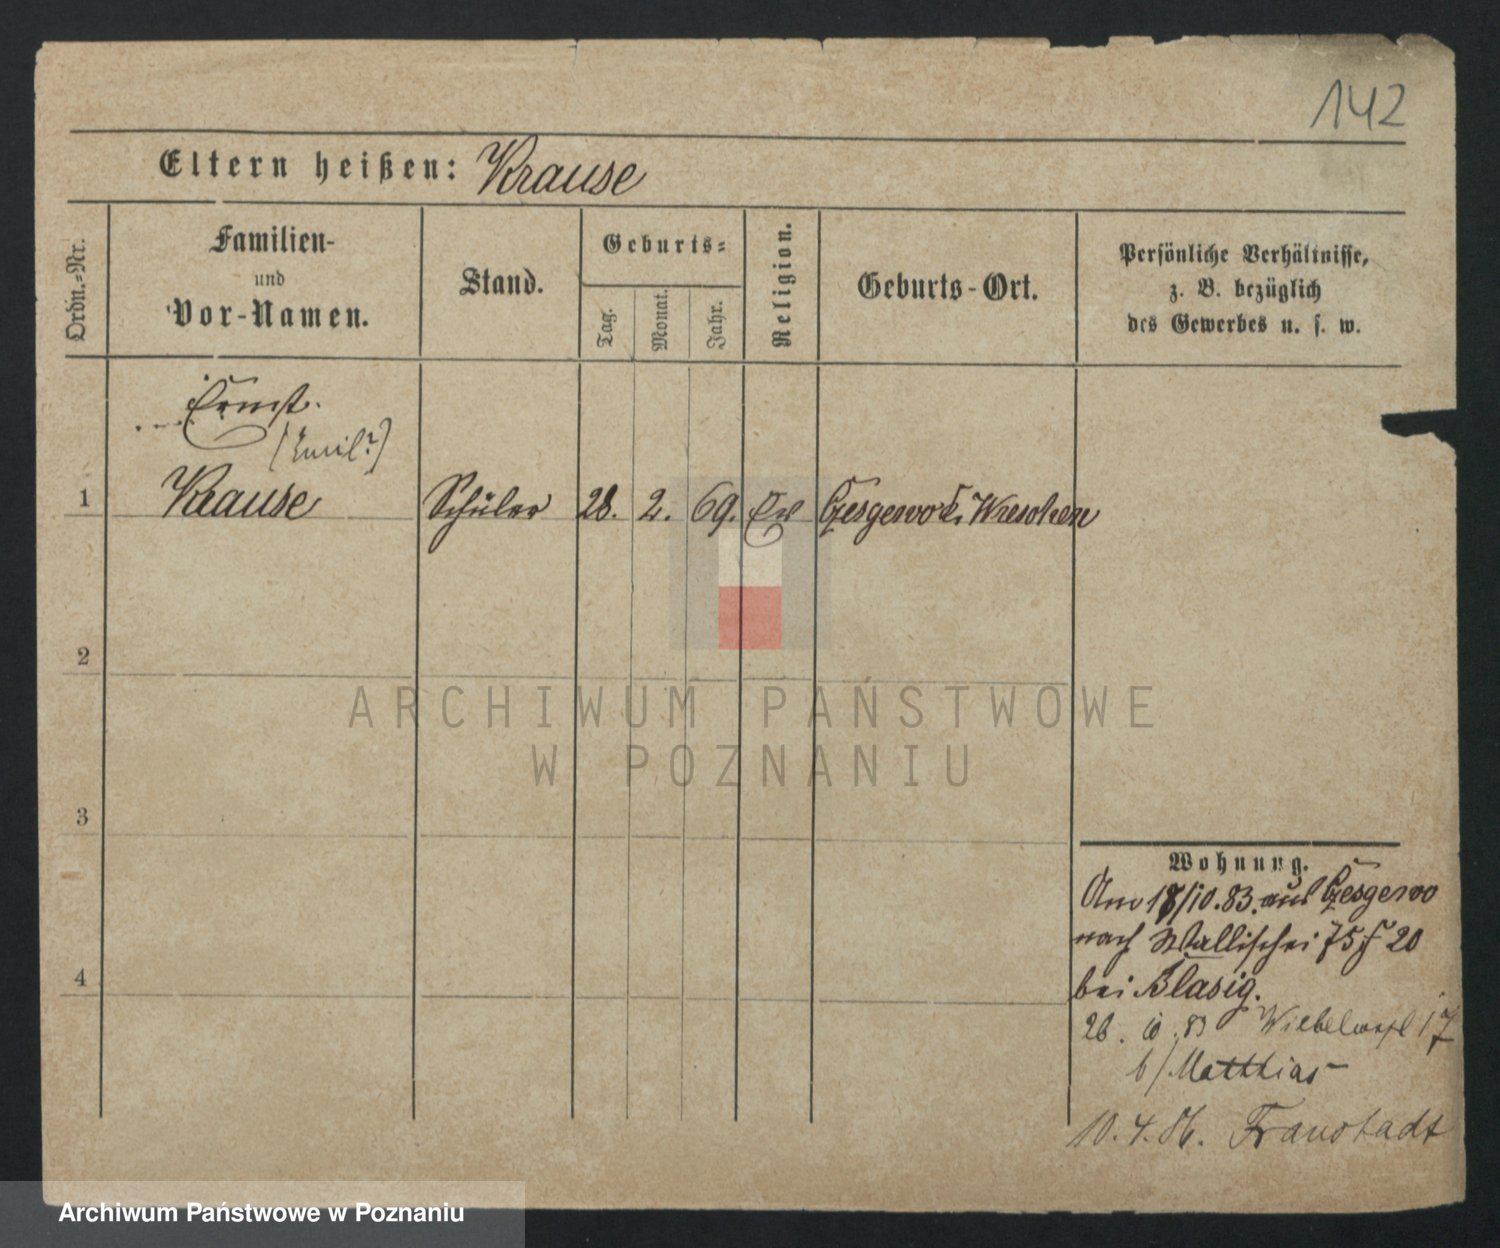 142
Eltern heißen: Krause
Ordn.-Nr.
Familien-
und
Vor-Namen.
Stand.
Geburts-
Tag.
Monat.
Jahr.
Religion.
Geburts-Ort.
Persönliche Verhältnisse,
z. B. bezüglich
des Gewerbes u. s. w.
Ernst.
(Emil?)
1 Krause Schüler 28. 2. 69. Ev Czesgewo Wreschen
2
3
4
Wohnung.
Am 18/10.83. aus Czesgewo
nach Wallischei 75 20
bei Blasig.
26. 10. 83 17
b/ Matthias
10. 4. 86. Fraustadt
ARCHIWUM PAŃSTWOWE
W POZNANIU
Archiwum Państwowe w Poznaniu